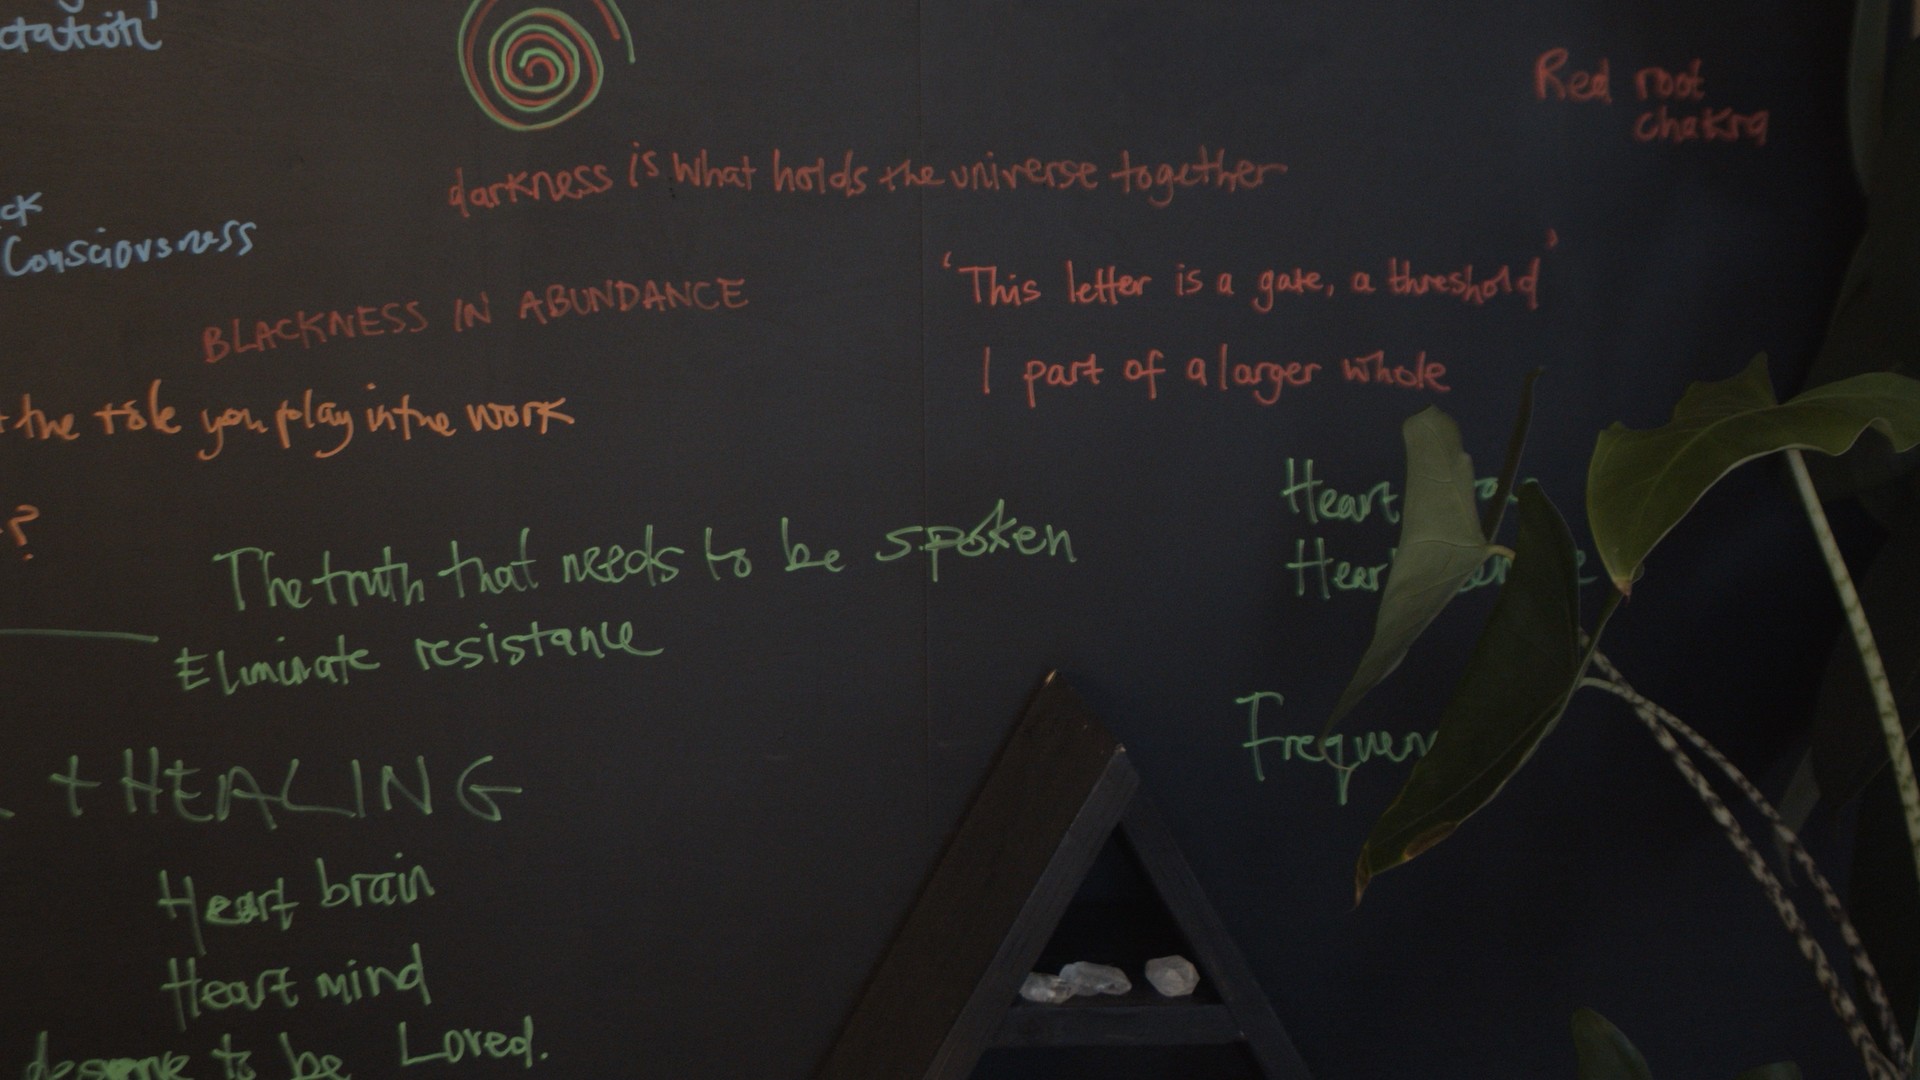 Red root
chakra
darkness is what holds the universe together
Consciousness
'This letter is a gate, a threshold'
BLACKNESS IN ABUNDANCE
1 part of a larger whole
the role you play in the work
Heart
?
The truth that needs to be spoken
Eliminate resistance
+ HEALING
Heart brain
Heart mind
deserve to be Loved.